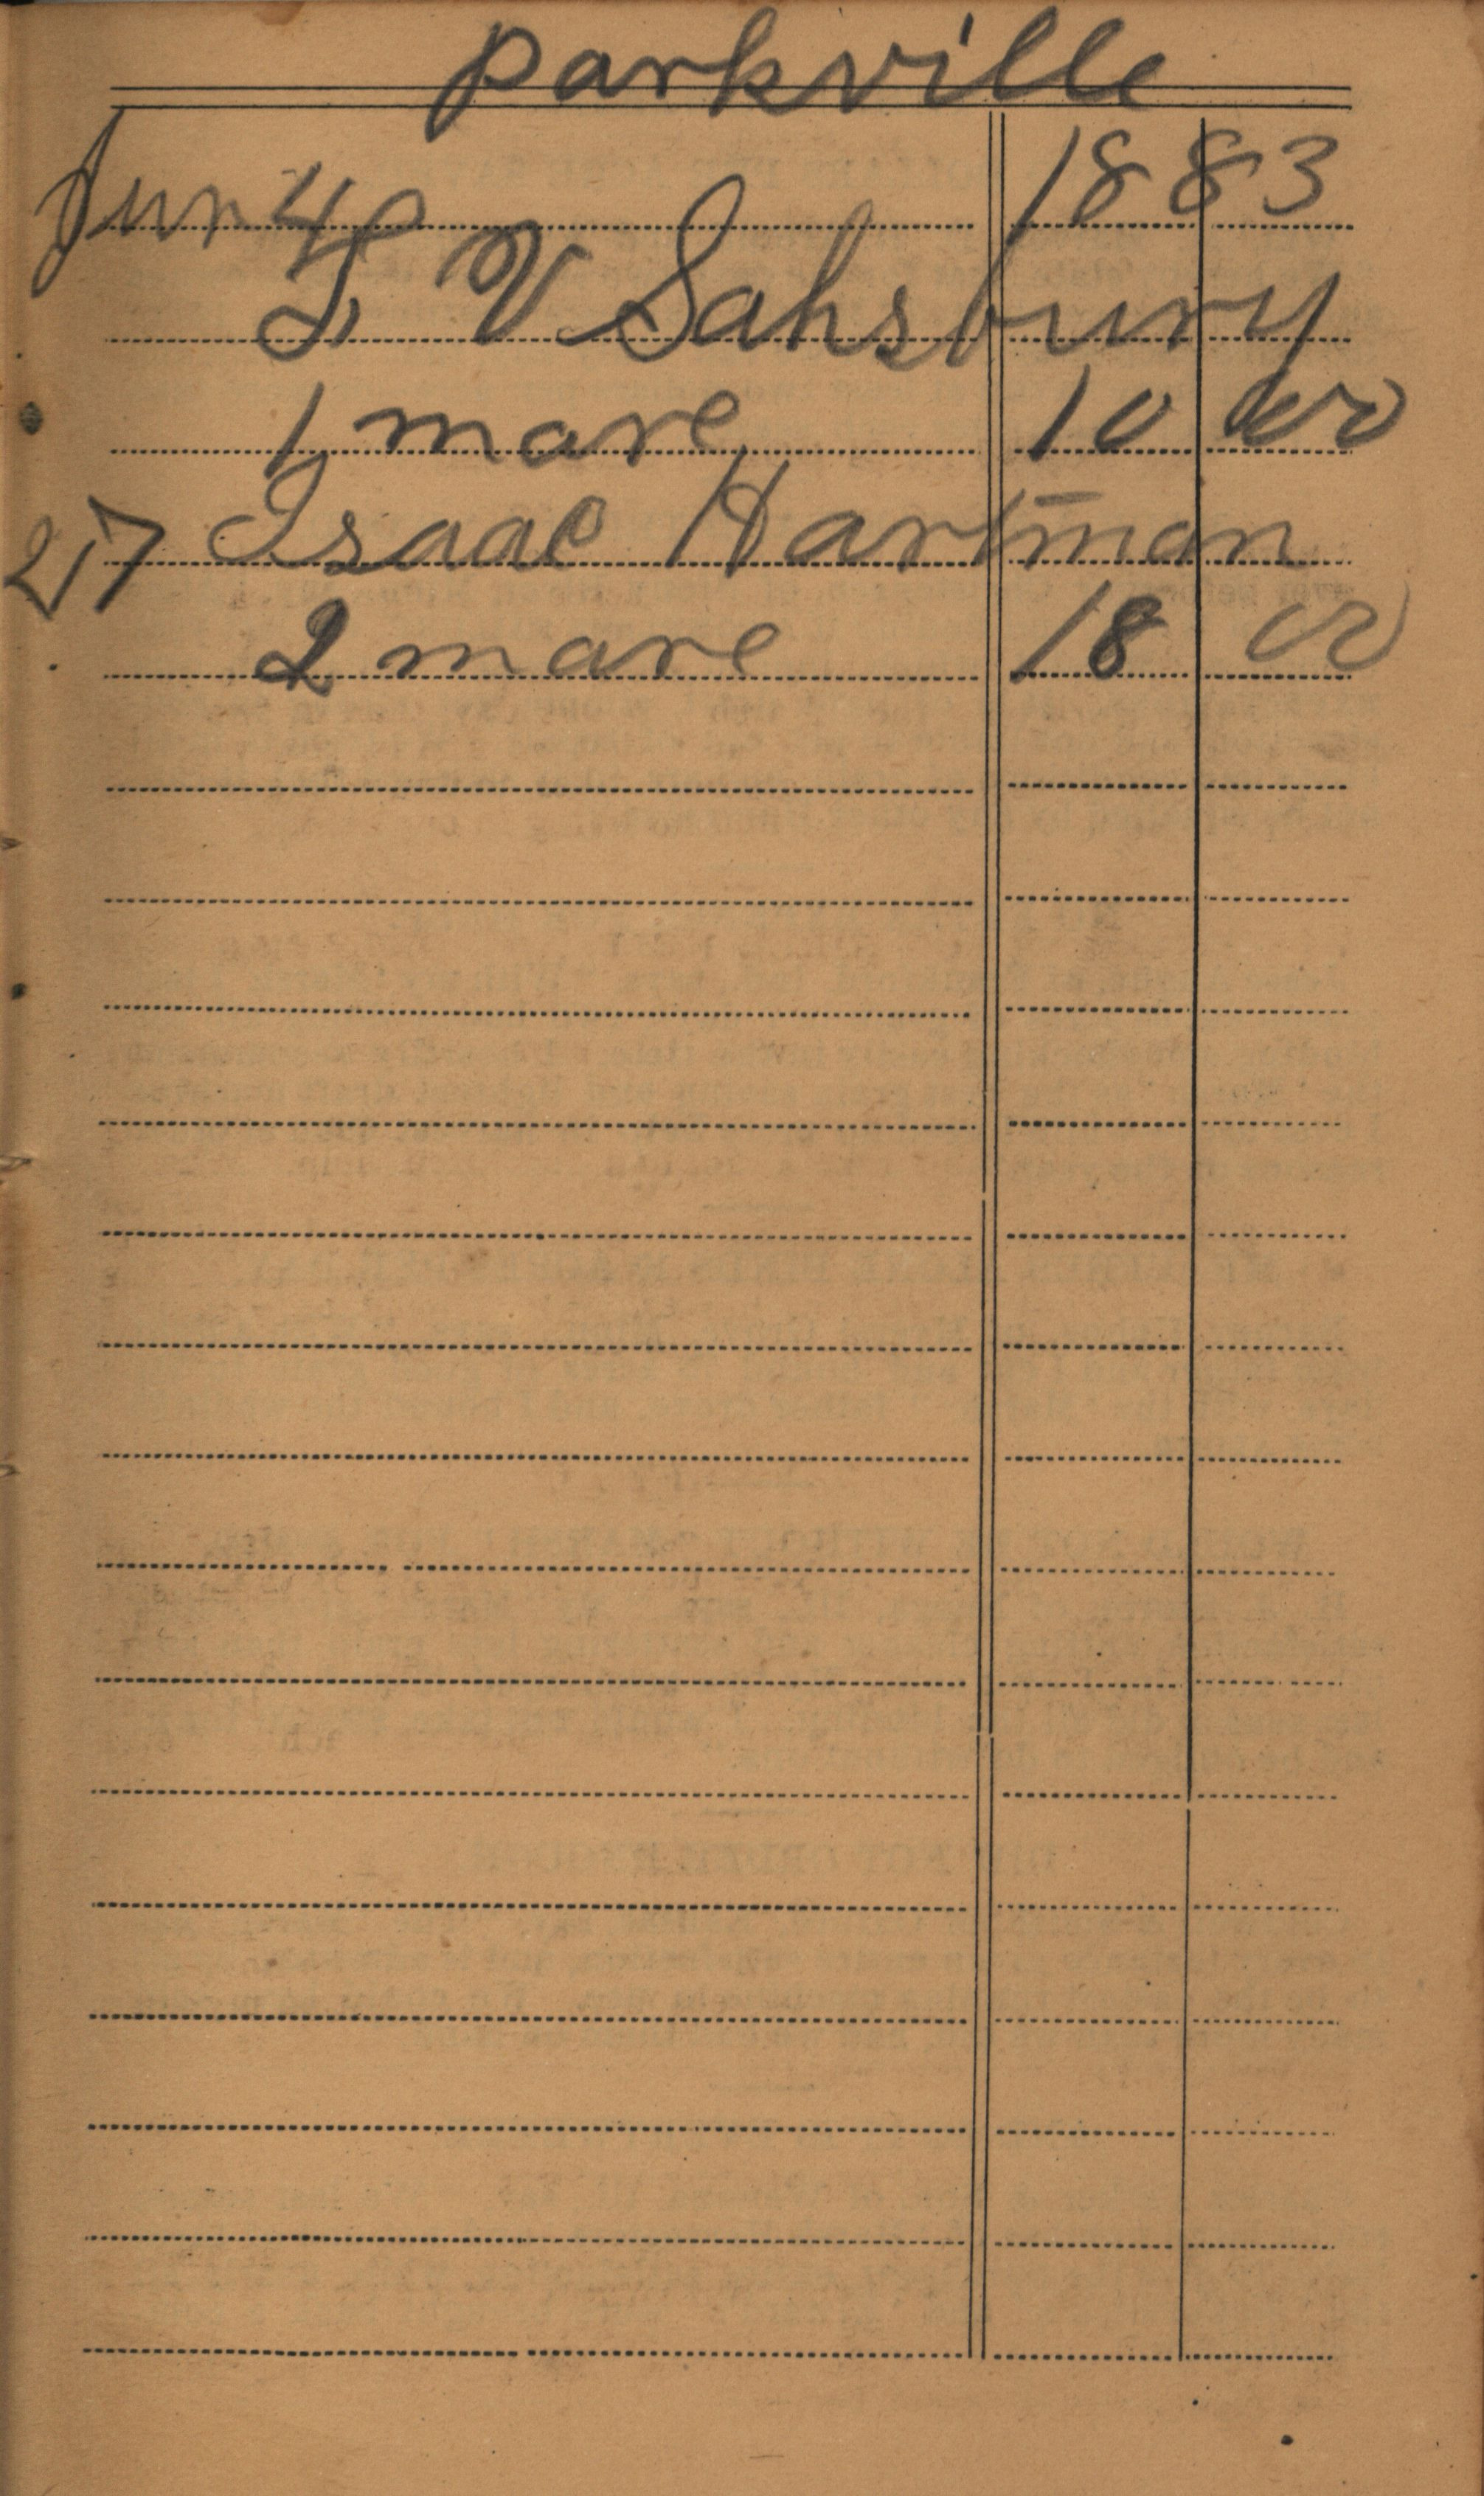 parkville
Jun 4 1883
J V Sahsbury
1 mare 10 00
27 Isaac Hartman
2 mare 18 00